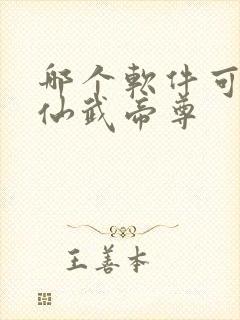 哪个軟件可
仙武帝尊
王善本